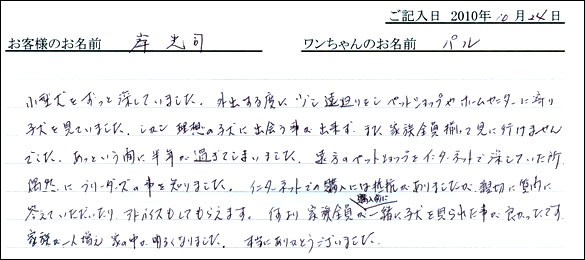 ご記入日 2010年10月24日
お客様のお名前 岸 光司 ワンちゃんのお名前 パル
小型犬をずっと探していました。外出する度に 少し遠回りをし ペットショップやホームセンターに寄り
子犬を見ていました。しかし 理想の子犬に出会う事が出来ず、また 家族全員揃って見に行けません
でした。あっという間に半年が過ぎてしまいました。遠方のペットショップをインターネットで探していた所
偶然にブリーダーズの事を知りました。インターネットでの購入には抵抗がありましたが、親切に質問に
答えていただいたり アドバイスもしてもらえます。何より 家族全員が 購入前に 一緒に子犬を見られた事が良かったです。
家族が一人増え 家の中が明るくなりました。本当にありがとうございました。